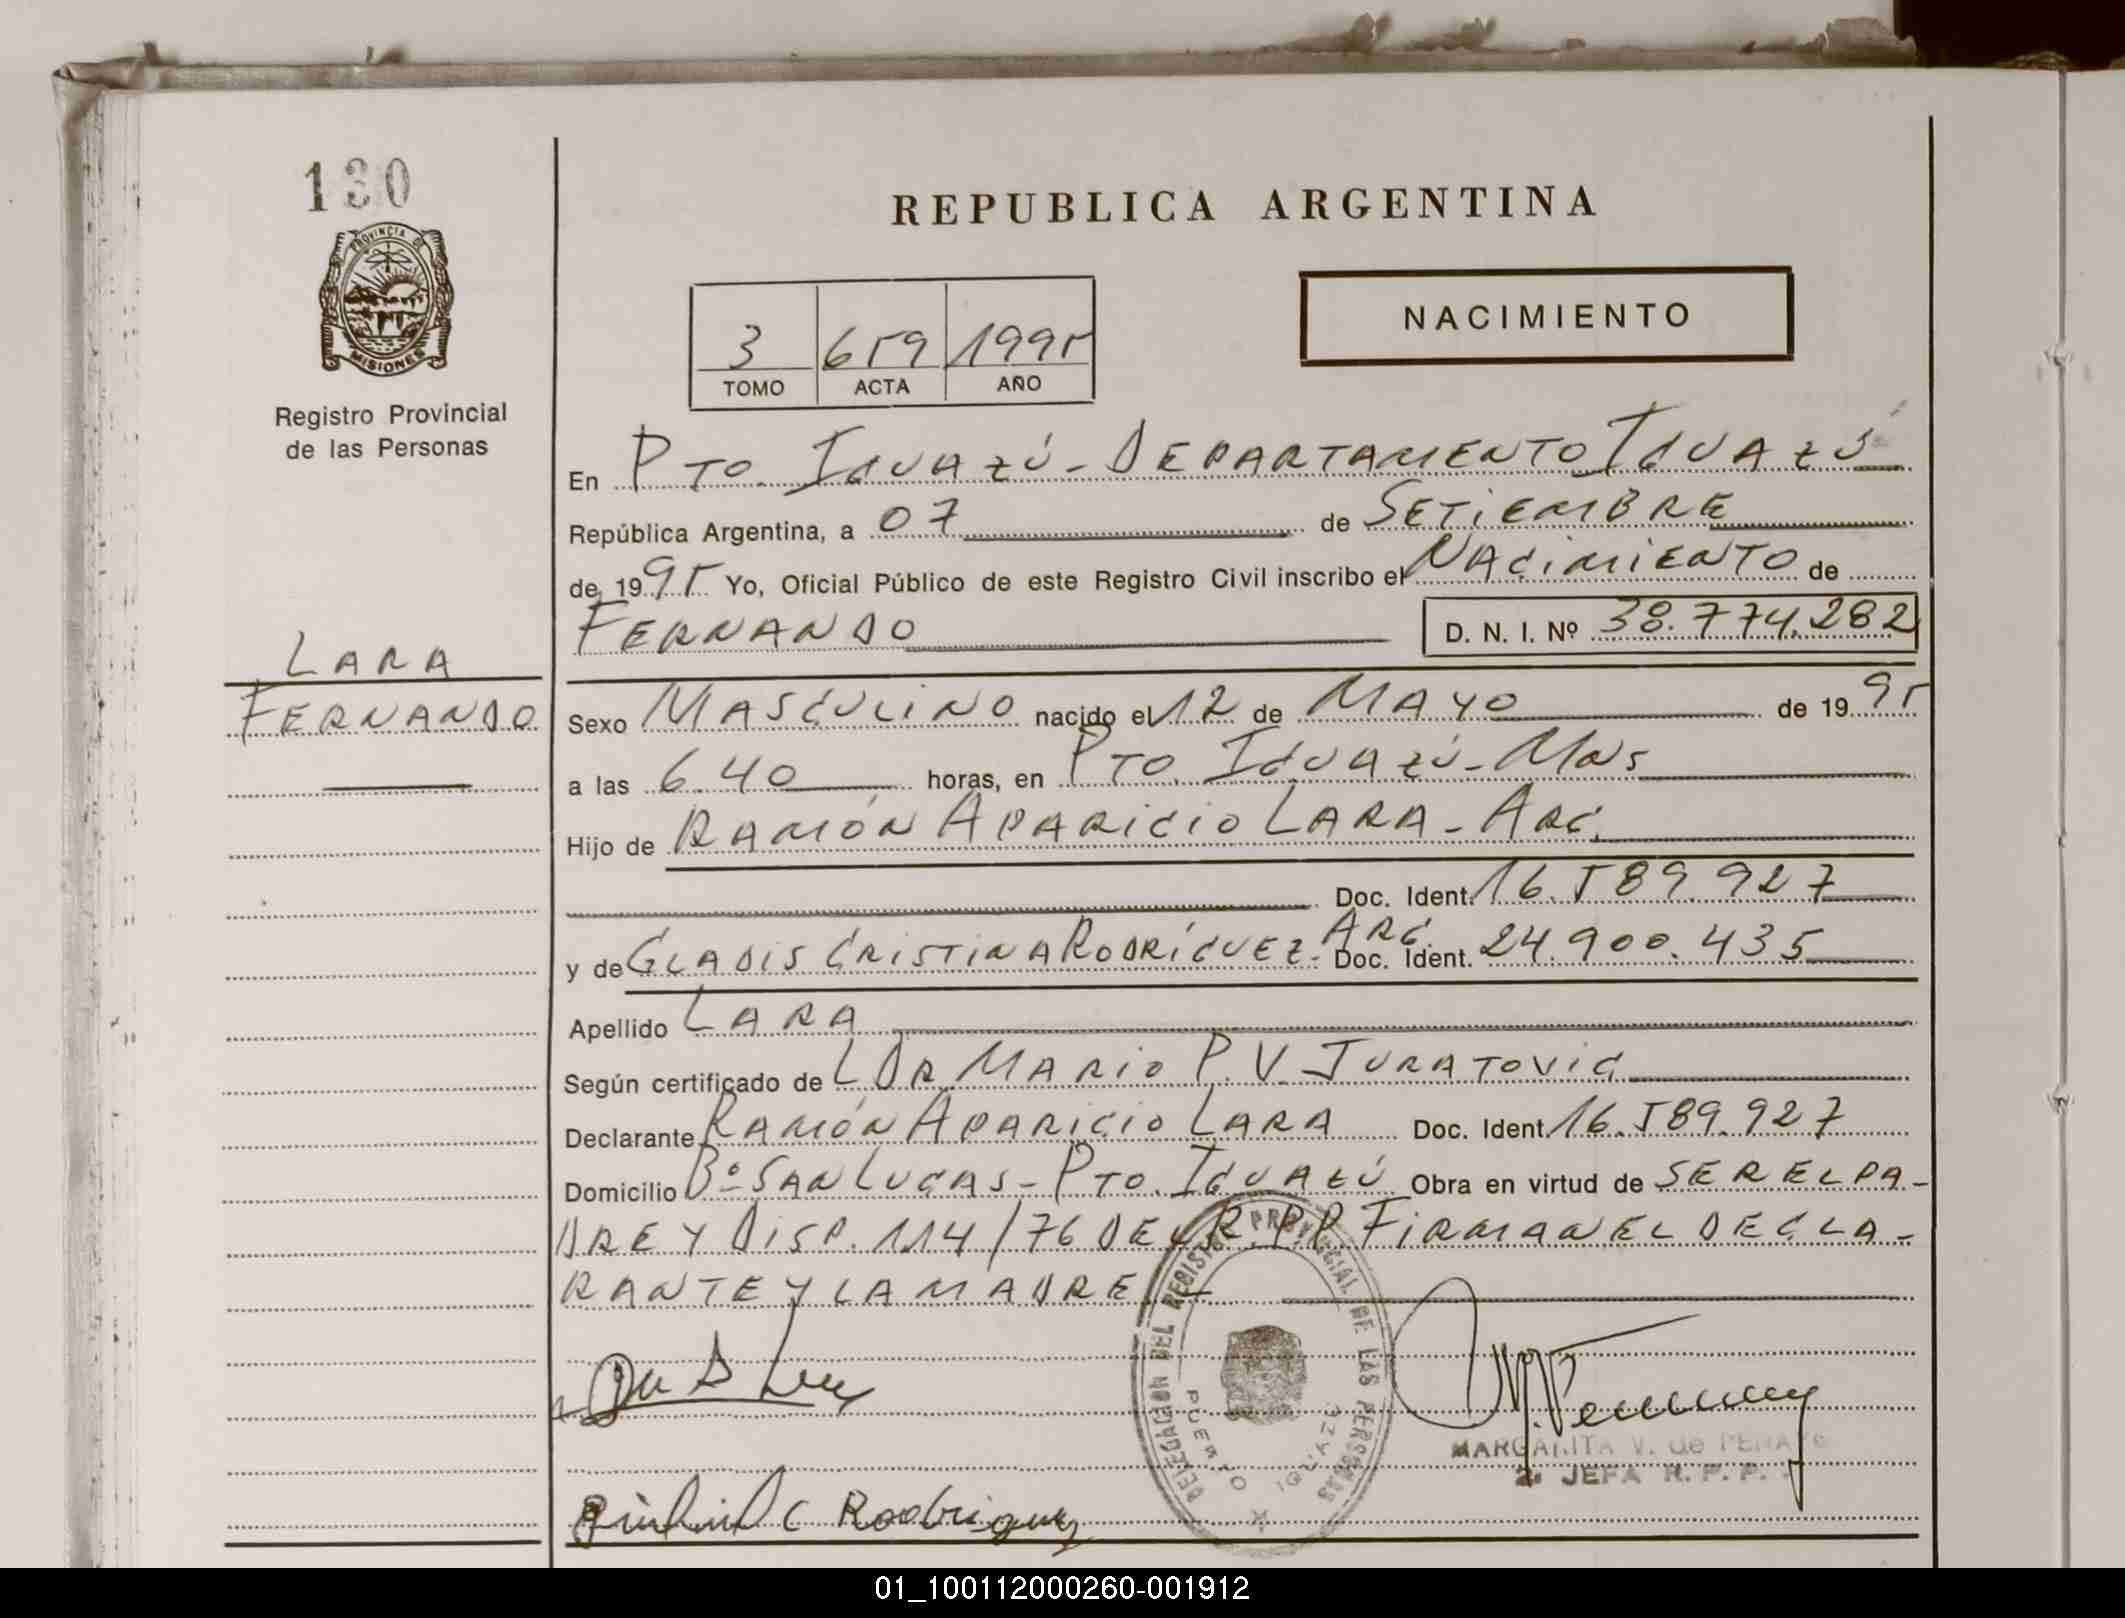 130
PROVINCIA DE
MISIONES
Registro Provincial
de las Personas
LARA
FERNANDO
REPUBLICA ARGENTINA
3 659 1995
TOMO ACTA AÑO
NACIMIENTO
En PTO. IGUAZÚ - DEPARTAMENTO IGUAZÚ
República Argentina, a 07 de SETIEMBRE
de 1995 Yo, Oficial Público de este Registro Civil inscribo el NACIMIENTO de
FERNANDO D. N. I. Nº 38.774.282
Sexo MASCULINO nacido el 12 de MAYO de 1995
a las 6.40 horas, en PTO. IGUAZÚ - Mns
Hijo de RAMÓN APARICIO LARA - ARG.
Doc. Ident. 16.589.927
y de GLADIS CRISTINA RODRÍGUEZ - ARG. Doc. Ident. 24.900.435
Apellido LARA
Según certificado de L DR MARIO P. V. JURATOVIC
Declarante RAMÓN APARICIO LARA Doc. Ident. 16.589.927
Domicilio Bº SAN LUCAS - PTO. IGUAZÚ Obra en virtud de SER EL PA-
DRE Y DISP. 114/76 DEL R.P.P. FIRMAN EL DECLA-
RANTE Y LA MADRE
DELEGACION DEL REGISTRO PROVINCIAL DE LAS PERSONAS
PUERTO IGUAZU
MARGARITA V. de
2ª JEFA R. P. P.
C Rodriguez
01_100112000260-001912